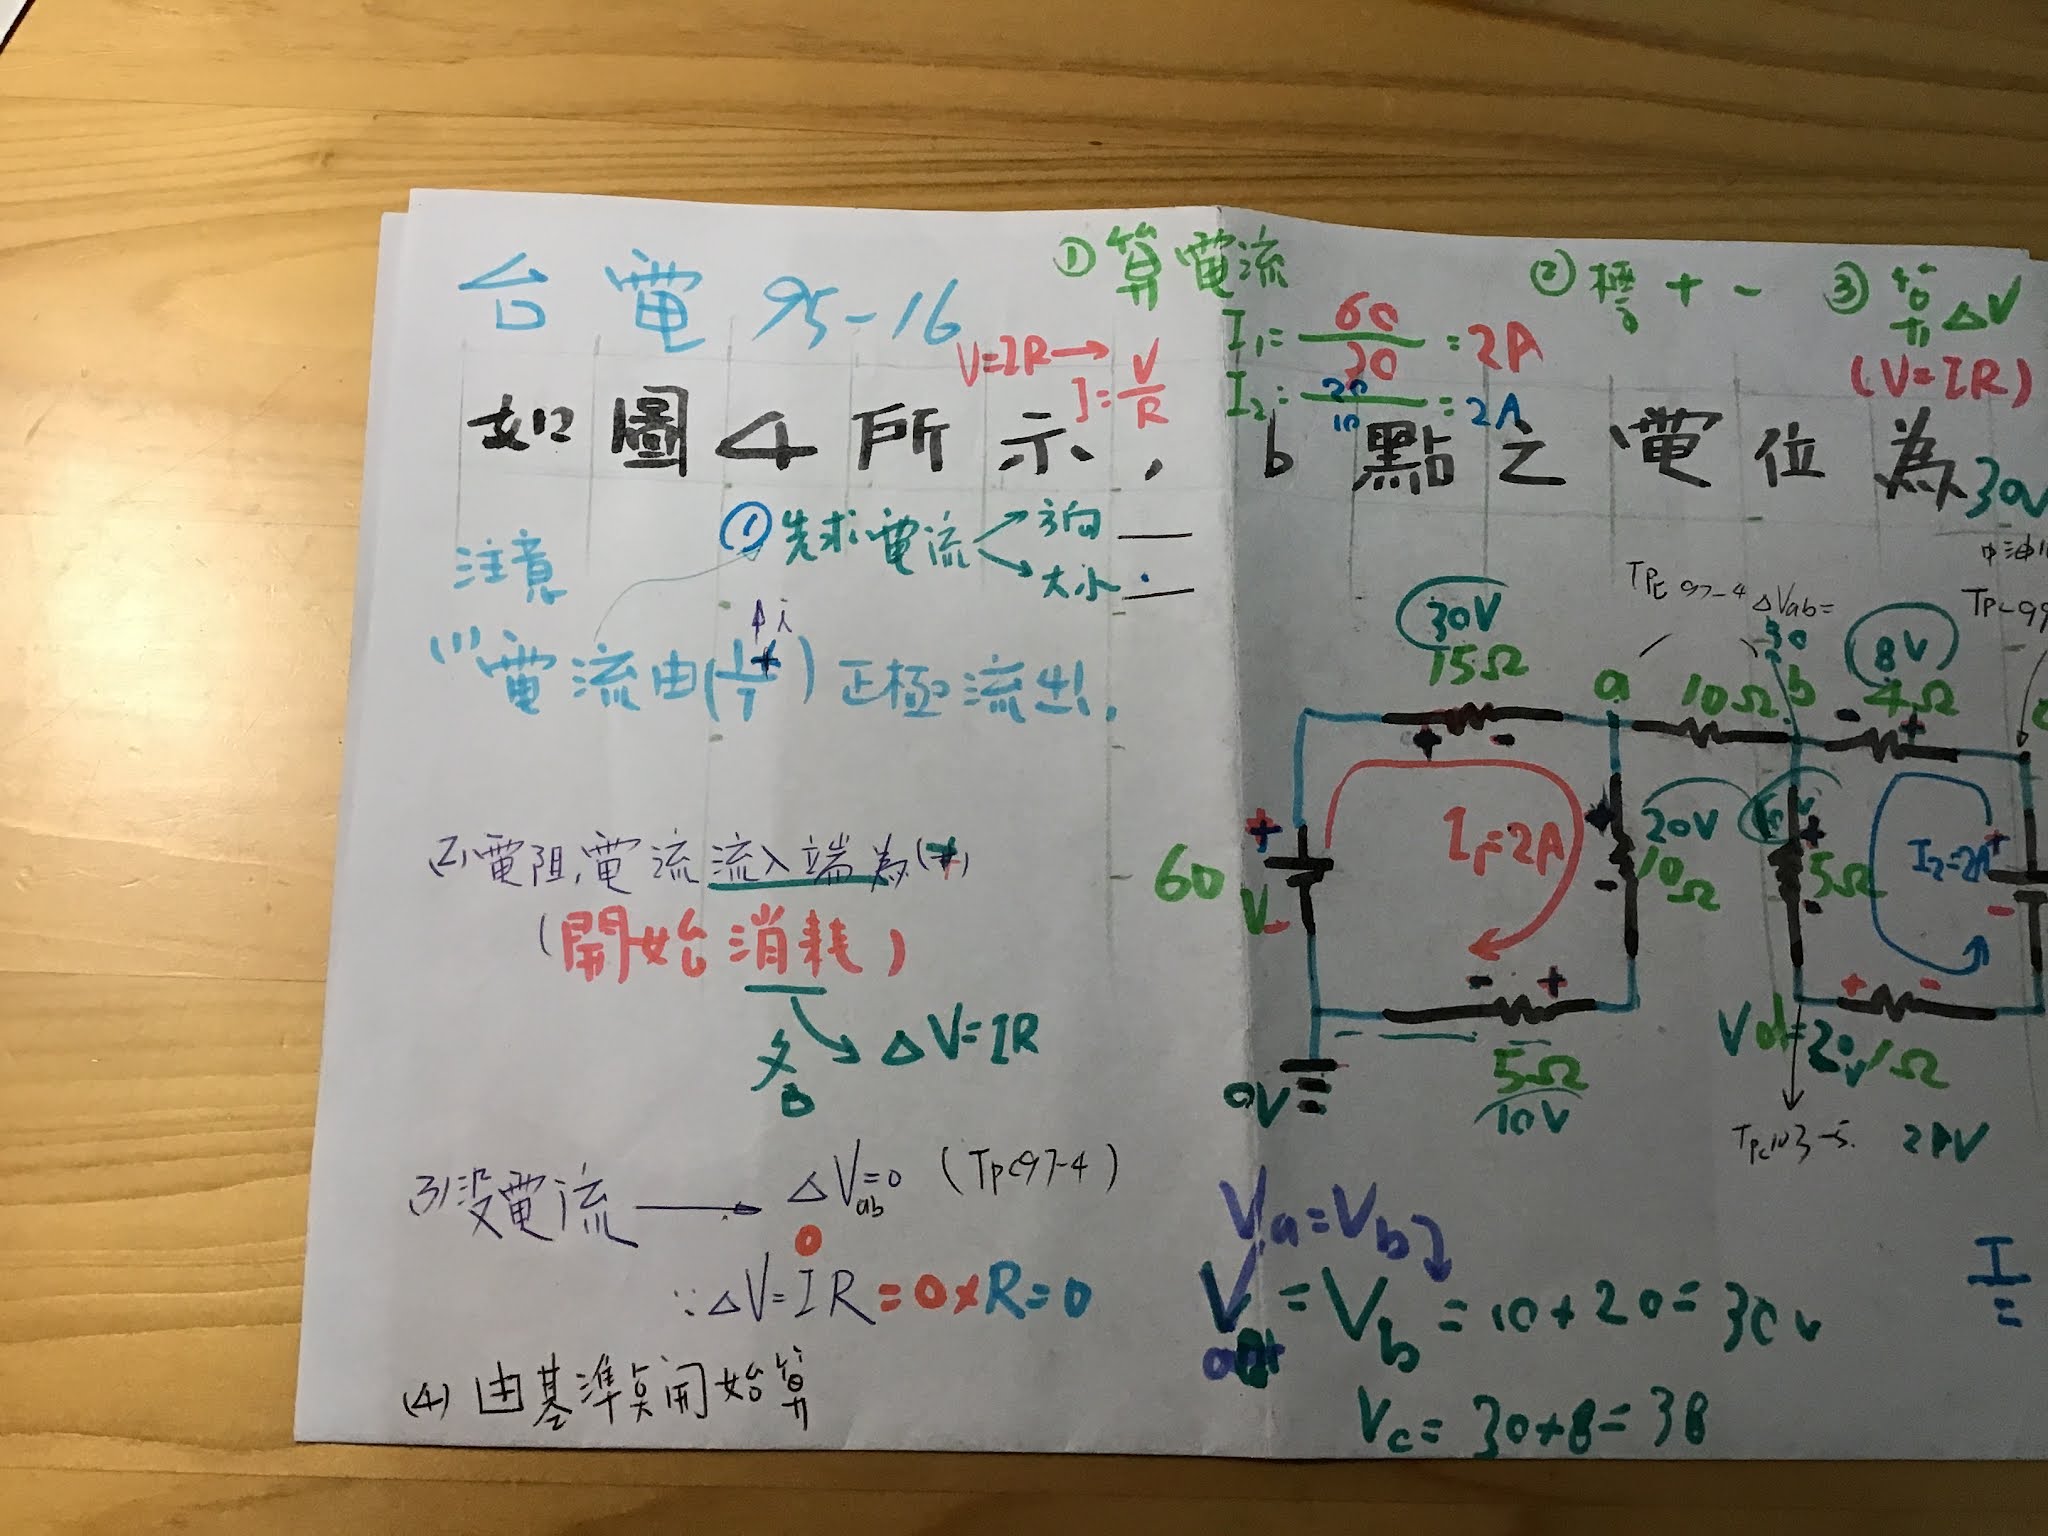 台電 95-16
① 算電流
② 標 + -
③ 算 ΔV
(V=IR)
V=IR→ I=V/R
I₁= 60/30 =2A
I₂= 20/10 =2A
如圖4所示, b點之電位為30V
注意
① 先求電流 方向
大小
(1) 電流由( ) 正極流出.
i
(2) 電阻,電流流入端為(+)
(開始消耗)
ΔV=IR
(3) 沒電流 → ΔVab=0 (TPC97-4)
0
∵ΔV=IR=0×R=0
(4) 由基準點開始算
30V
15Ω
a
10Ω
b
8V
4Ω
TPC 97-4 ΔVab=
+ -
- +
60V
I₁=2A
20V
10Ω
5Ω
I₂=2A
- +
+ -
5Ω
10V
0V
Vd=20V
1Ω
TPC103-5.
Va=Vb
= Vb = 10+20=30V
Vc= 30+8=38
I
=